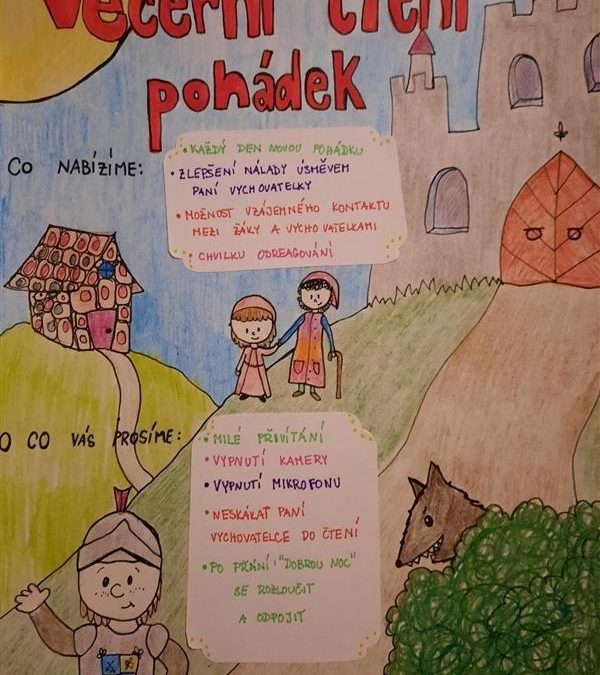 Večerní čtení
pohádek
CO NABÍZÍME:
• KAŽDÝ DEN NOVOU POHÁDKU
• ZLEPŠENÍ NÁLADY ÚSMĚVEM
PANÍ VYCHOVATELKY
• MOŽNOST VZÁJEMNÉHO KONTAKTU
MEZI ŽÁKY A VYCHOVATELKAMI
• CHVILKU ODREAGOVÁNÍ
O CO VÁS PROSÍME:
• MILÉ PŘIVÍTÁNÍ
• VYPNUTÍ KAMERY
• VYPNUTÍ MIKROFONU
• NESKÁKAT PANÍ
VYCHOVATELCE DO ČTENÍ
• PO PŘÁNÍ: "DOBROU NOC"
SE ROZLOUČIT
A ODPOJIT